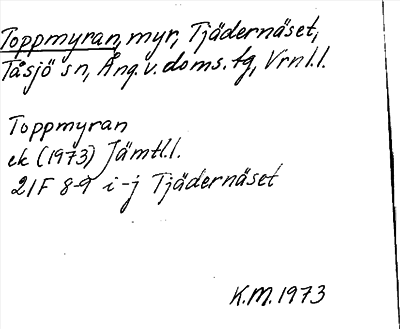 Toppmyran, myr, Tjädernäset,
Tåsjö sn, Ång. v. doms. tg, Vrnl. l.
Toppmyran
ek (1973) Jämtl. l.
21F 8-9 i-j Tjädernäset
K.M. 1973